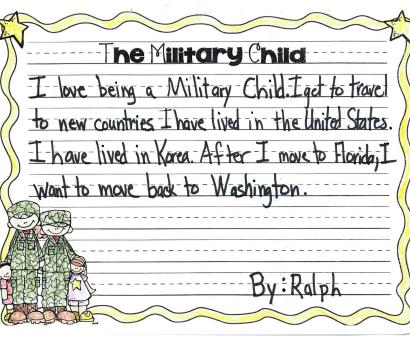 The Military Child
I love being a Military Child. I get to travel
to new countries. I have lived in the United States.
I have lived in Korea. After I move to Florida, I
want to move back to Washington.
By: Ralph